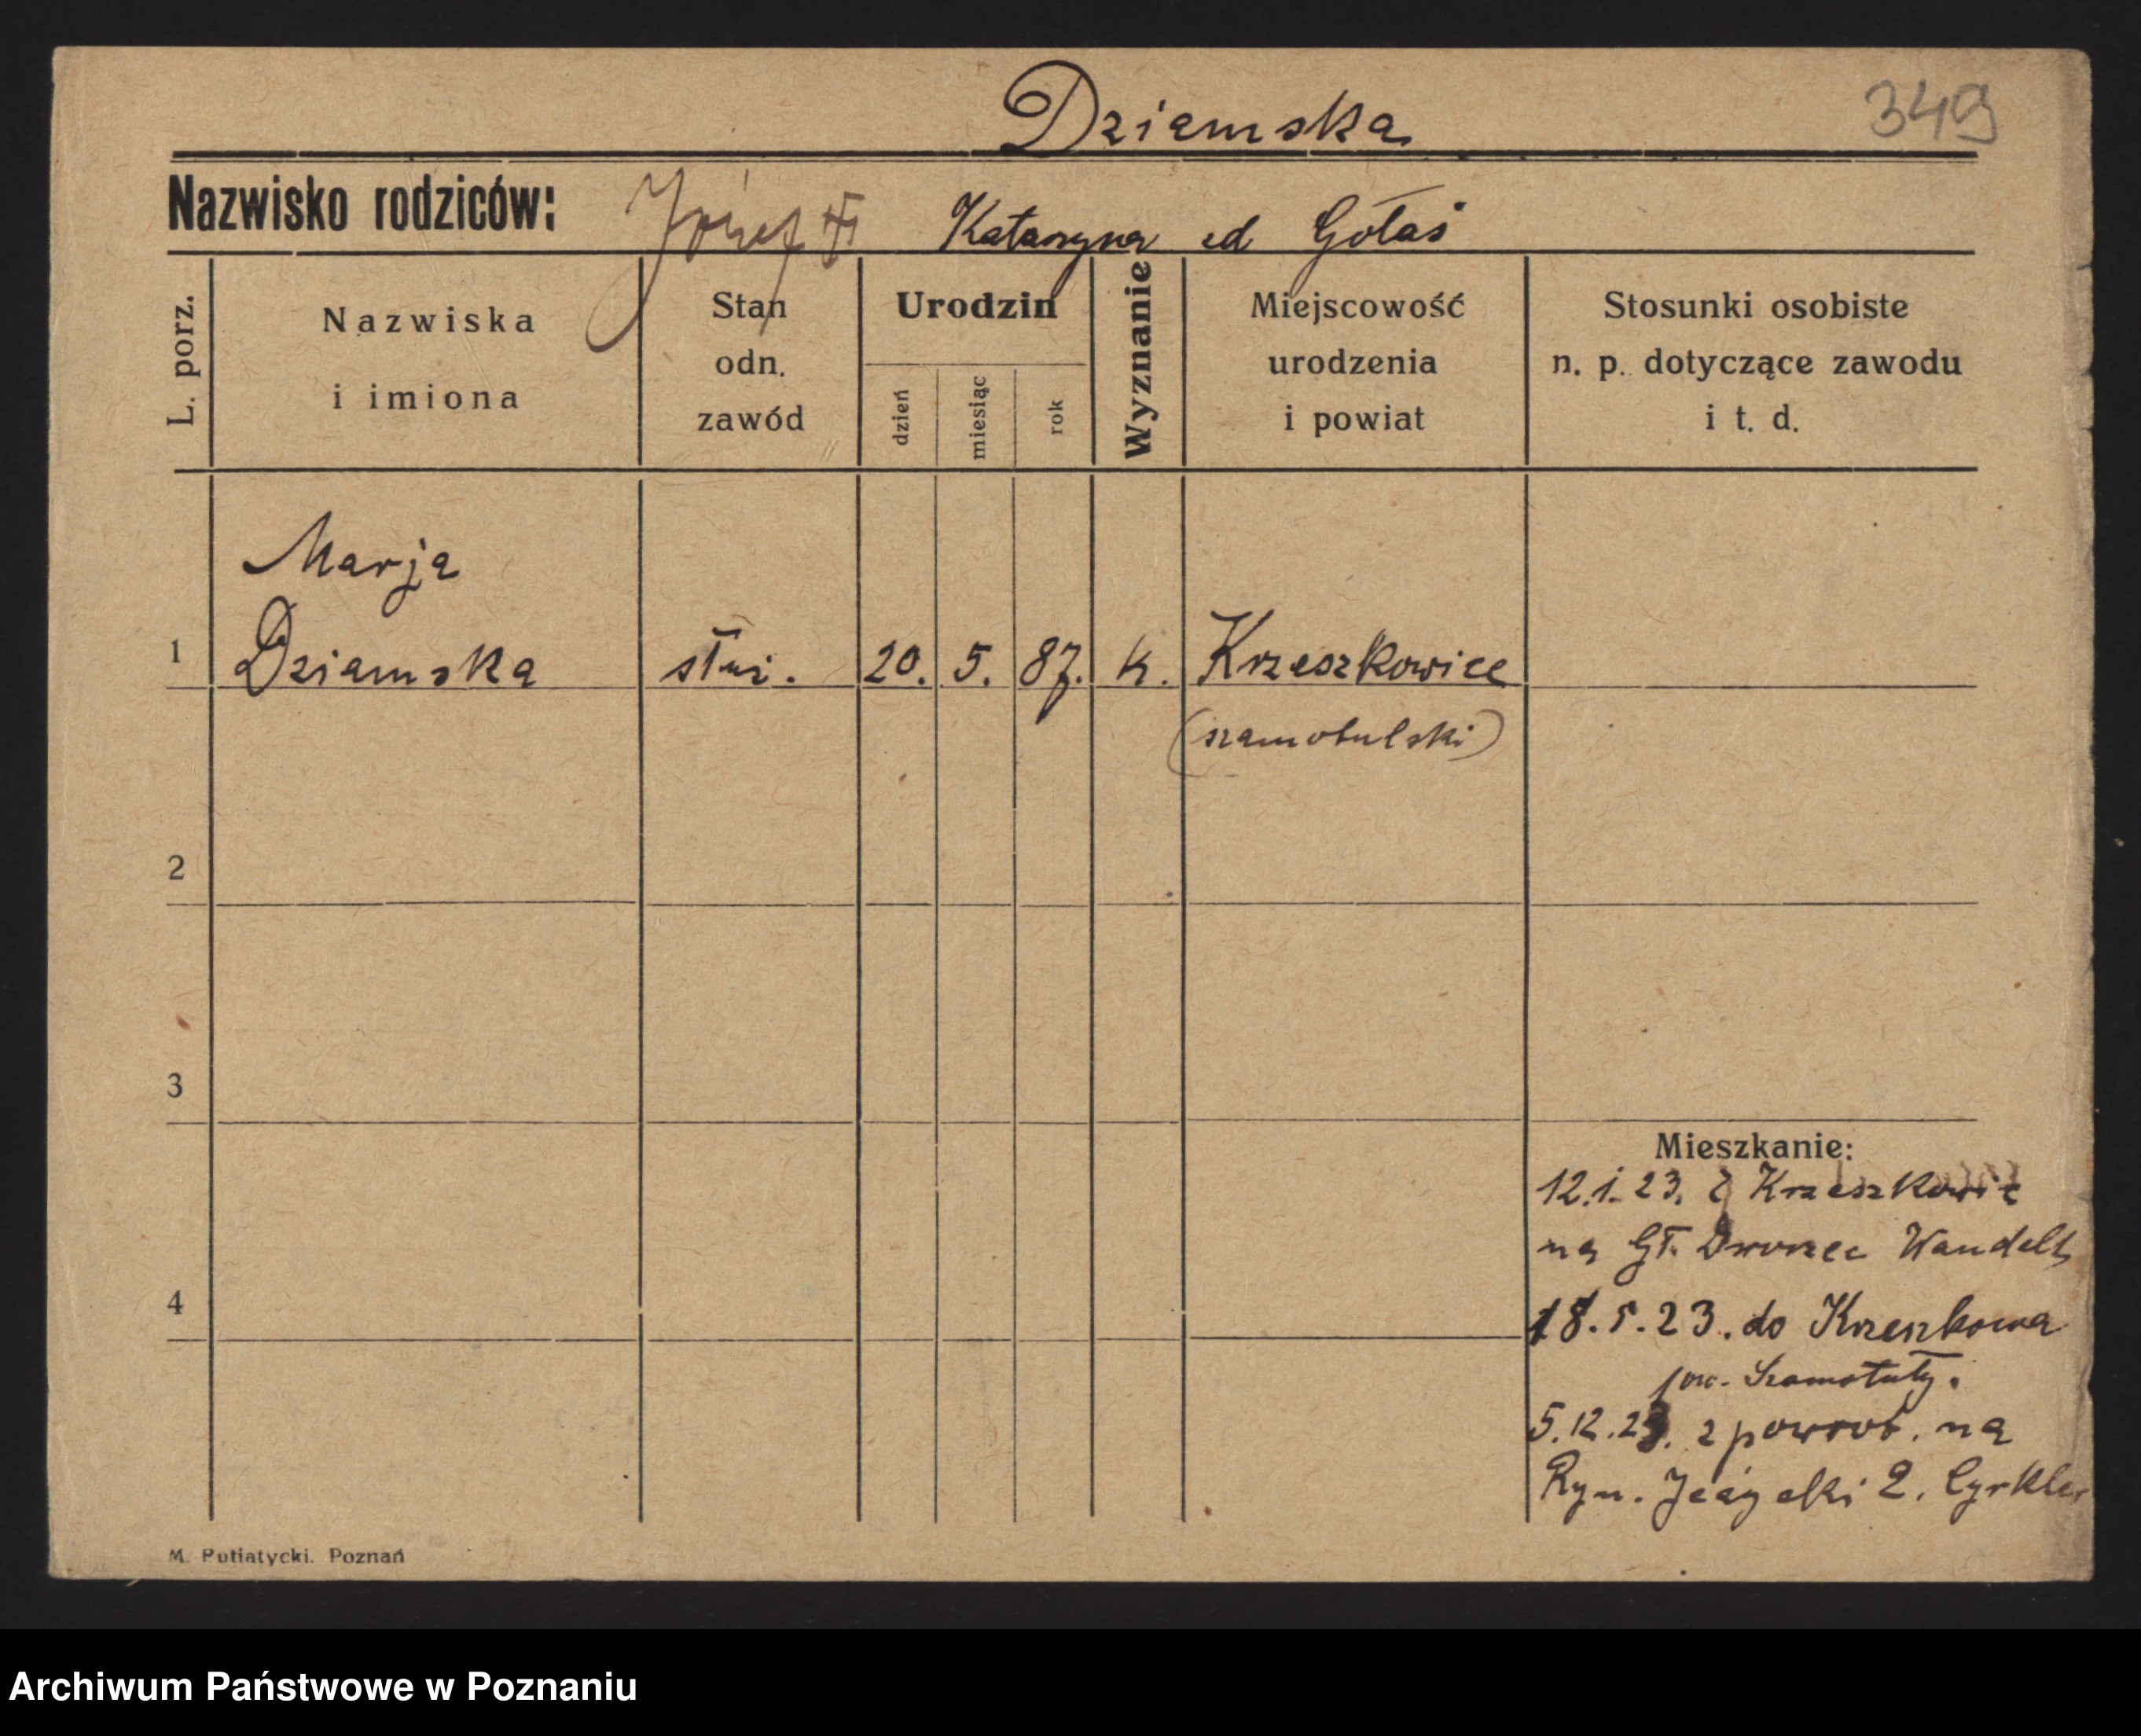 Dziamska
349
Nazwisko rodziców: Józef Katarzyna cd Gołaś
L. porz.
Nazwiska
i imiona
Stan
odn.
zawód
Urodzin
dzień
miesiąc
rok
Wyznanie
Miejscowość
urodzenia
i powiat
Stosunki osobiste
n. p. dotyczące zawodu
i t. d.
Marja
1 Dziamska służ. 20. 5. 87. k. Krzeszkowice
(szamotulski)
2
3
Mieszkanie:
12.1.23. z Krzeszkowic
na Gł. Dworzec
4
18.5.23. do Krzeszkowa
pow. Szamotuły.
5.12.23. z powrot. na
Ryn. Jeżycki 2. Cyrkler
M. Putiatycki. Poznań
Archiwum Państwowe w Poznaniu